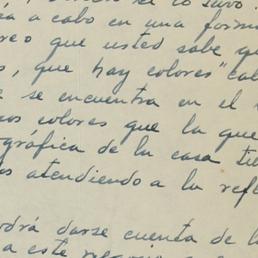 se lo
a a cabo en una form
reo que usted sabe qu
s, que hay colores "cal
e se encuentra en el
nos colores que la que
ográfica de la casa tie
os atendiendo a la refl
odrá darse cuenta de l
a este